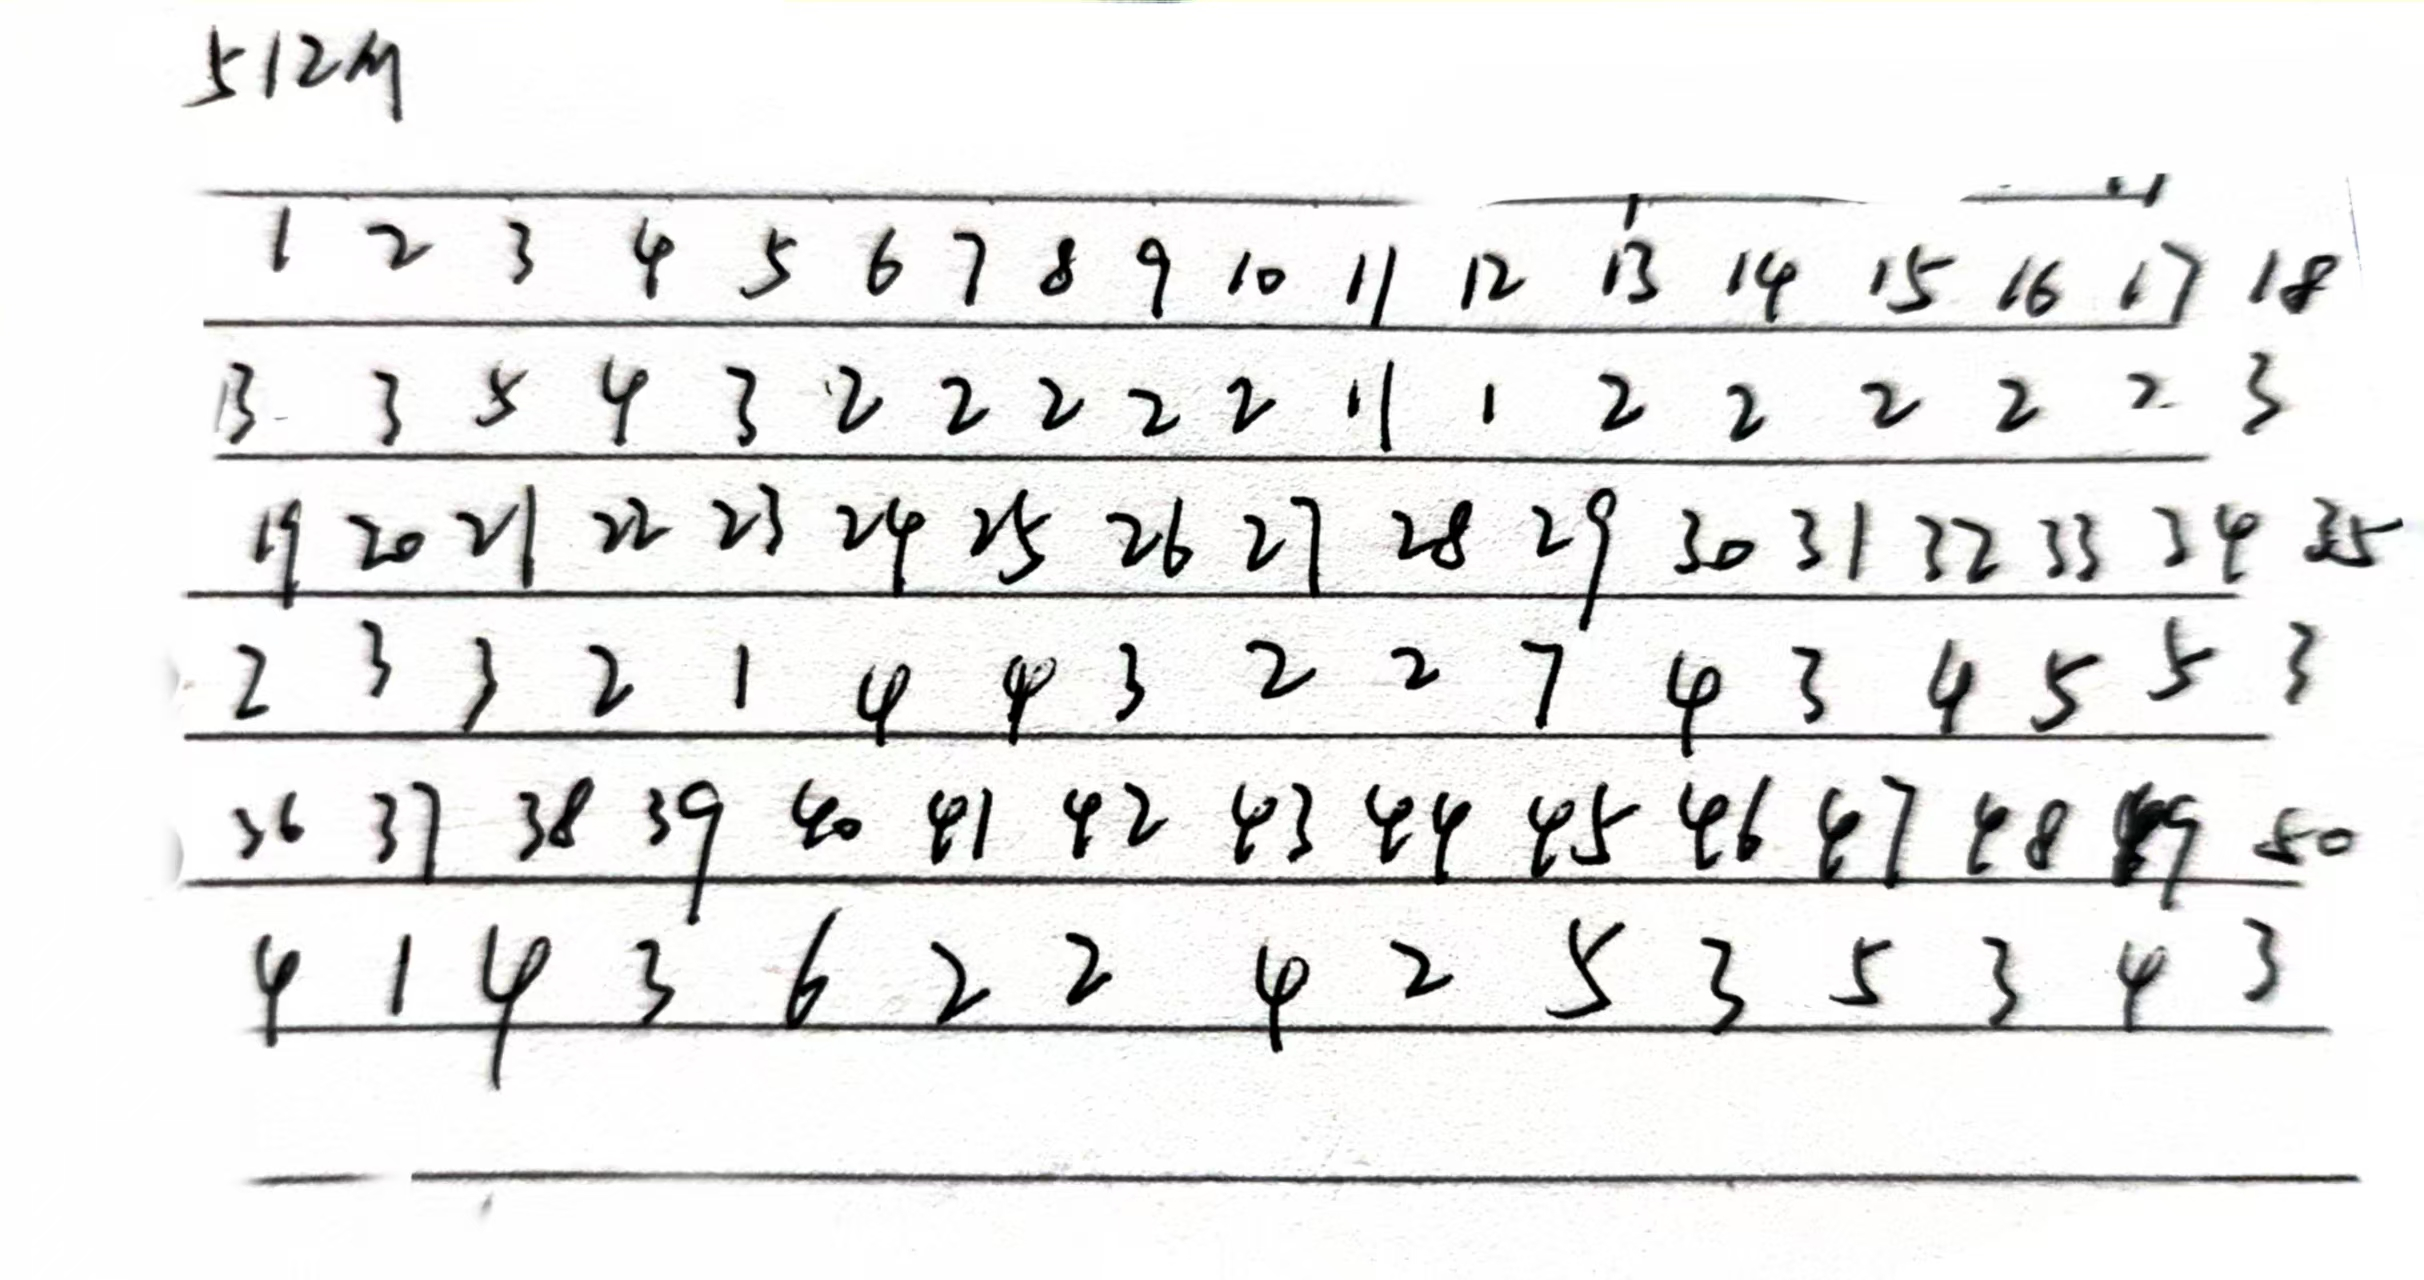 512M
1 2 3 4 5 6 7 8 9 10 11 12 13 14 15 16 17 18
13 3 5 4 3 2 2 2 2 2 11 1 2 2 2 2 2 3
19 20 21 22 23 24 25 26 27 28 29 30 31 32 33 34 35
2 3 3 2 1 4 4 3 2 2 7 4 3 4 5 5 3
36 37 38 39 40 41 42 43 44 45 46 47 48 49 50
4 1 4 3 6 2 2 4 2 5 3 5 3 4 3